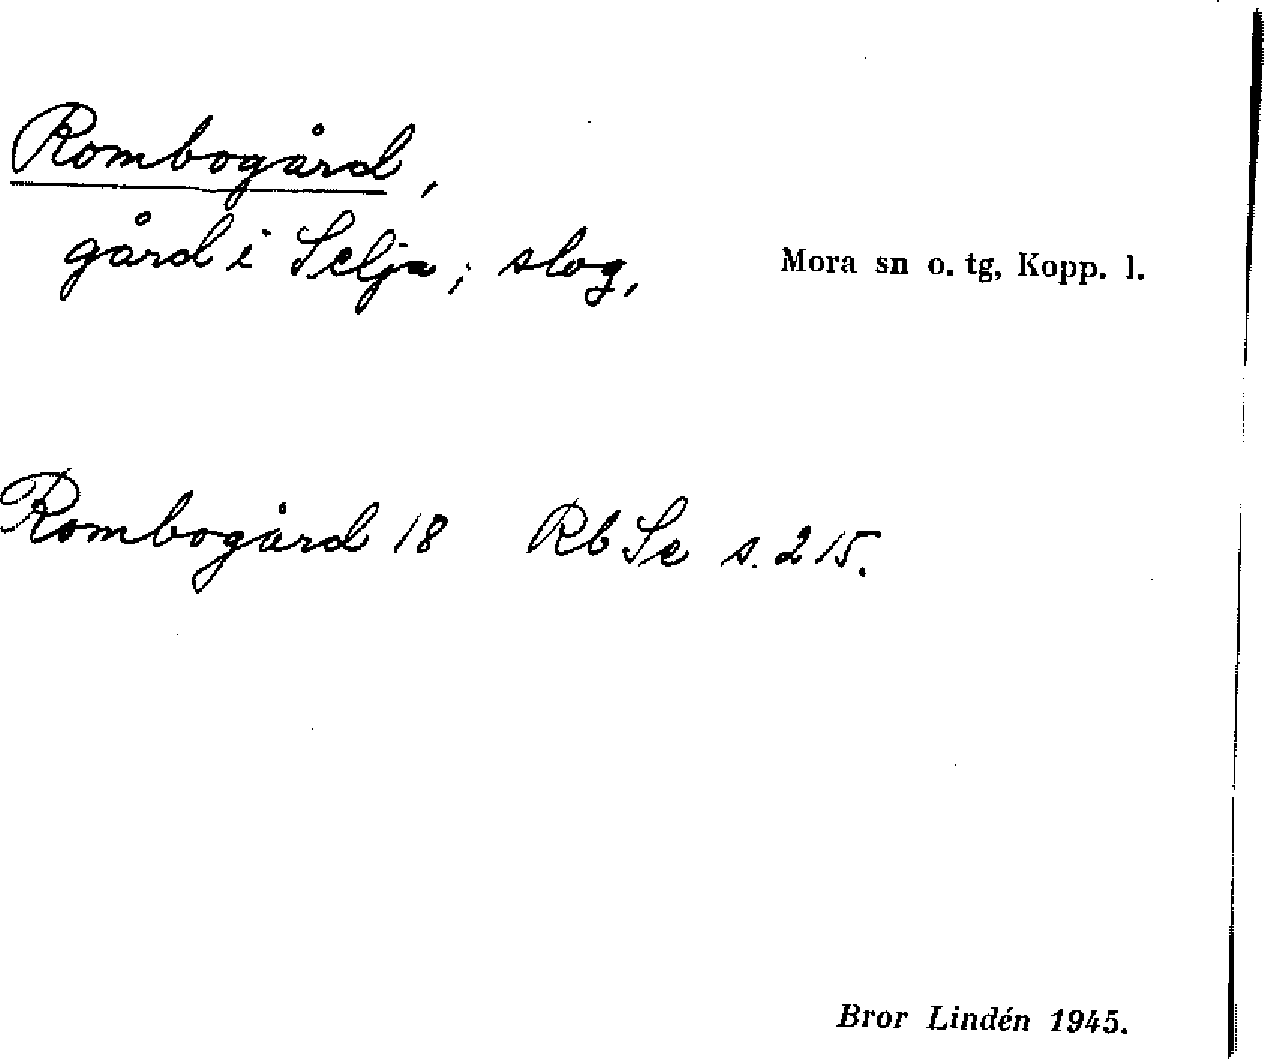 Rombogård,
gård i Selja; slog,
Mora sn o. tg, Kopp. l.
Rombogård 18 Rb Se s. 215.
Bror Lindén 1945.